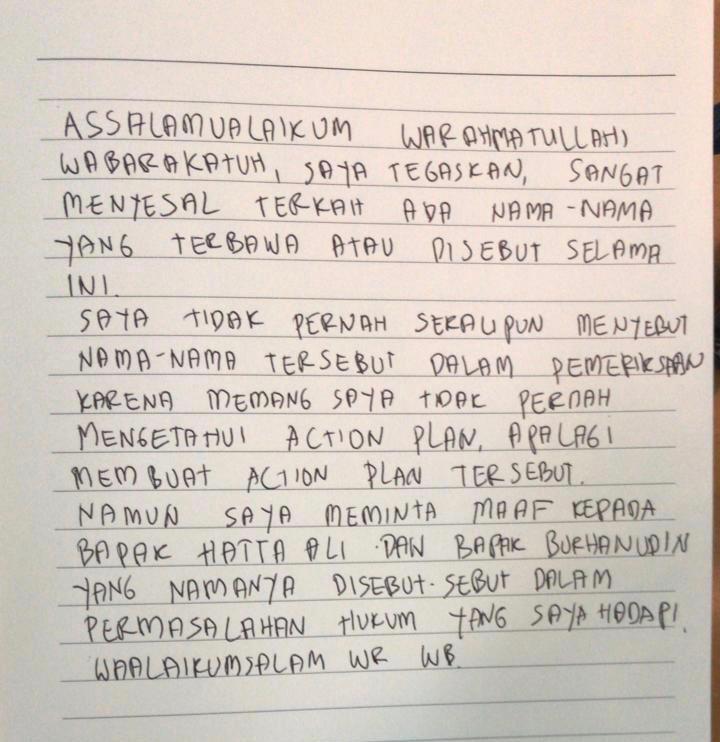 ASSALAMUALAIKUM WARAHMATULLAHI
WABARAKATUH, SAYA TEGASKAN, SANGAT
MENYESAL TERKAH ADA NAMA-NAMA
YANG TERBAWA ATAU DISEBUT SELAMA
INI.
SAYA TIDAK PERNAH SEKALIPUN MENYEBUT
NAMA-NAMA TERSEBUT DALAM PEMERIKSAAN
KARENA MEMANG SAYA TIDAK PERNAH
MENGETAHUI ACTION PLAN, APALAGI
MEMBUAT ACTION PLAN TERSEBUT.
NAMUN SAYA MEMINTA MAAF KEPADA
BAPAK HATTA ALI DAN BAPAK BURHANUDIN
YANG NAMANYA DISEBUT-SEBUT DALAM
PERMASALAHAN HUKUM YANG SAYA HADAPI.
WAALAIKUMSALAM WR WB